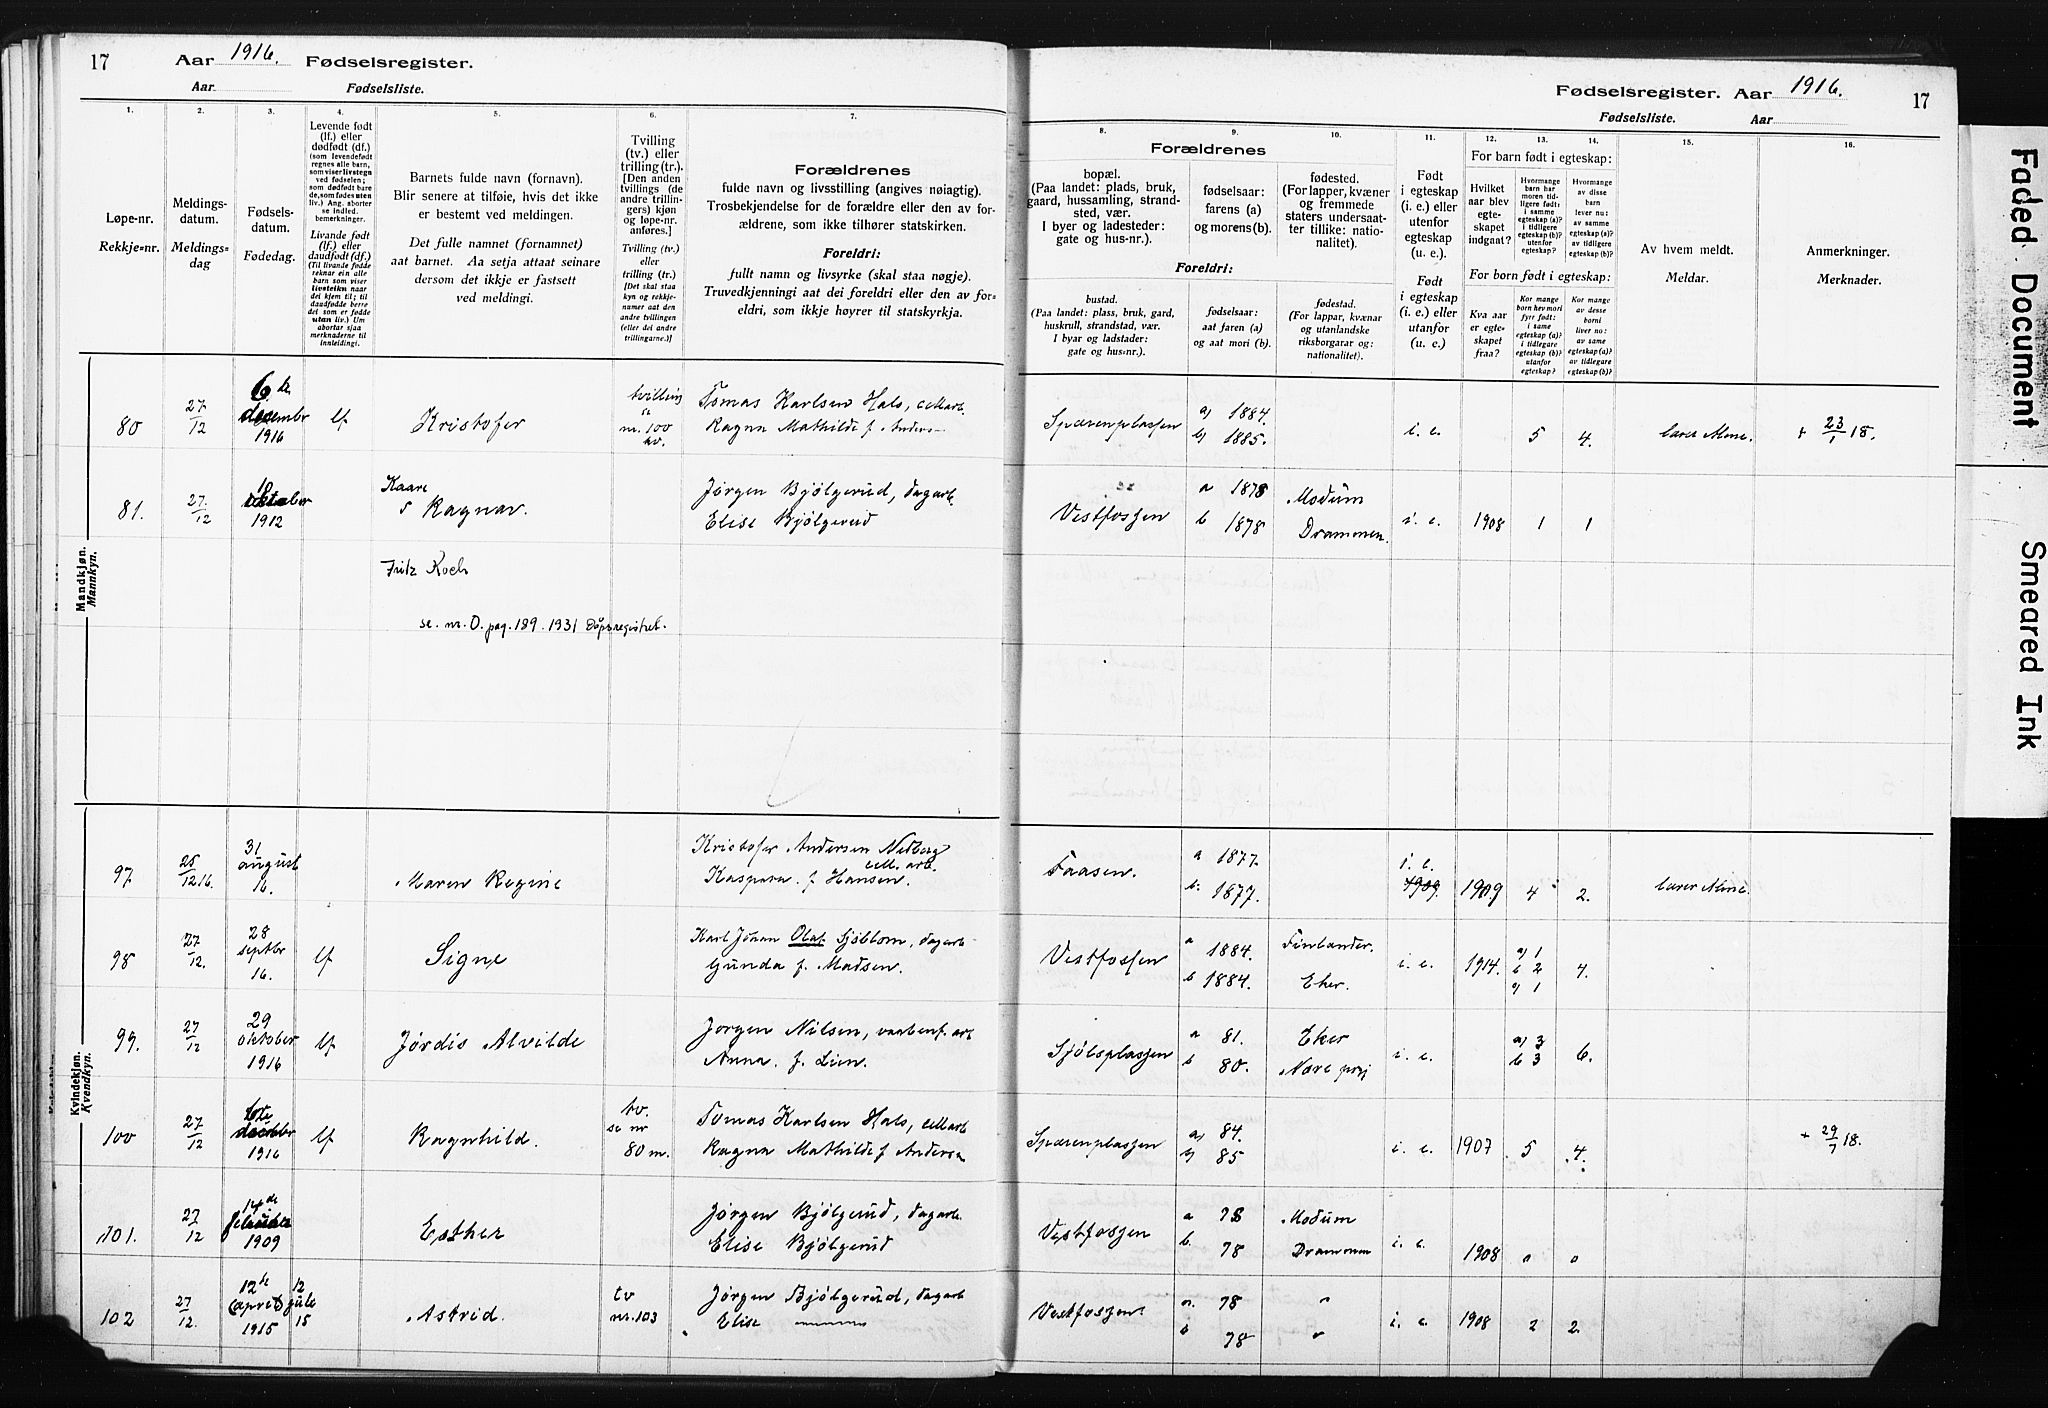 17 Aar 1916. Fødselsregister.
Aar Fødselsliste.
Fødselsregister. Aar 1916. 17
Fødselsliste. Aar
1. 2. 3. 4. 5. 6. 7.
Løpe-nr.
Rekkje-nr.
Meldings-
datum.
Meldings-
dag
Fødsels-
datum.
Fødedag.
Levende født
(lf.) eller
dødfødt (df.)
(som levendefødt
regnes alle barn,
som viser livstegn
ved fødselen;
som dødfødt bare
de, som fødes uten
liv.) Ang. aborter
se indled.
bemerkninger.
Livande født
(lf.) eller
daudfødt (df.)
(Til livande fødde
reknar ein alle
barn som viser
livsteikn naar
dei kjem til; til
daudfødde berre
dei som er fødde
utan liv.) Um
abortar sjaa
merknaderne til
innleidingi.
Barnets fulde navn (fornavn).
Blir senere at tilføie, hvis det ikke
er bestemt ved meldingen.
Det fulle namnet (fornamnet)
aat barnet. Aa setja attaat seinare
dersom det ikkje er fastsett
ved meldingi.
Tvilling
(tv.) eller
trilling (tr.).
[Den anden
tvillings (de
andre trillin-
gers) kjøn
og løpe-nr.
anføres.]
Tvilling (tv.)
eller
trilling (tr.)
[Det skal staa
kyn og rekkje-
numer aat den
andre tvillingen
(eller dei andre
trillingarne.)]
Forældrenes
fulde navn og livsstilling (angives nøiagtig).
Trosbekjendelse for de forældre eller den av for-
ældrene, som ikke tilhører statskirken.
Foreldri:
fullt namn og livsyrke (skal staa nøgje).
Truvedkjenningi aat dei foreldri eller den av for-
eldri, som ikkje høyrer til statskyrkja.
8. 9. 10. 11. 12. 13. 14. 15. 16.
Forældrenes
bopæl.
(Paa landet: plads, bruk,
gaard, hussamling, strand-
sted, vær.
I byer og ladesteder:
gate og hus-nr.).
fødselsaar:
farens (a)
og morens (b).
fødested.
(For lapper, kvæner
og fremmede
staters undersaat-
ter tillike: natio-
nalitet).
Foreldri:
bustad.
(Paa landet: plass, bruk, gard,
huskrull, strandstad, vær.
I byar og ladstader:
gate og hus-nr.).
fødselsaar:
aat faren (a)
og aat mori (b).
fødestad.
(For lappar, kvænar
og utanlandske
riksborgarar og:
nationalitet).
Født
i egteskap
(i. e.) eller
utenfor
egteskap
(u. e.).
Født
i egteskap
(i. e.) eller
utanfor
egteskap
(u. e.).
For barn født i egteskap:
Hvilket
aar blev
egte-
skapet
indgaat?
Hvormange
barn har
moren tid-
ligere født:
i samme
egteskap (a)?
i tidligere
egteskap (b)?
utenfor
egteskap?
Hvormange
av disse
barn
lever nu:
av samme
egteskap (a)?
av tidligere
egteskap (b)?
For born født i egteskap:
Kva aar
er egte-
skapet
fraa?
Kor mange
born hev mori
fyrr født:
i same
egteskap (a)?
i tidlegare
egteskap (b)?
utanfor
egteskap?
Kor mange
av desse
borni
liver no:
av same
egteskap (a)?
av tidlegare
egteskap (b)?
Av hvem meldt.
Meldar.
Anmerkninger.
Merknader.
Mandkjøn.
Mannkyn.
80 27/12 6.te desember 1916 lf Kristofer tvilling se nr. 100 kv.
Tomas Karlsen Hals, cellarb.
Ragna Mathilde f. Anders-
Spærenplassen a) 1884. b) 1885. i. e. 5 4. lærer Moe. + 23/1 18.
81. 27/12 10 oktober 1912 Kaare Ragnar.
Jørgen Bjølgerud, dagarb.
Elise Bjølgerud
Vestfossen a 1878 b 1878 Modum Drammen. i. e. 1908 1 1
Fritz Koch
se. nr. 0. pag. 189. 1931 Dåpsregistret.
Kvindekjøn.
Kvendkyn.
97. 25/12 16. 31 august 16. Maren Regine
Kristofer Andersen Nedberg cell. arb.
Kaspara f. Hansen.
Faasen. a 1877. b. 1877. i. e. 1909. 1909 4 2.
98 27/12. 28 septbr 16. lf Signe
Karl Johan Olaf Sjøblom, dagarb
Gunda f. Madsen.
Vestfossen a 1884. b 1884. Finlander. Eker. i. e. 1914. a) 1 b 2 a) 1 4.
99. 27/12 29 oktober 1916 lf Jørdis Alvilde
Jørgen Nilsen, vaabenf. arb
Anna f. Lien.
Sjølsplassen a 81. b 80. Eker Nore prgj i. e. a) 3 b 3 6.
100 27/12 6te 1916 lf Ragnhild. tv. se nr 80 m.
Tomas Karlsen Hals, cellarb
Ragna Mathilde f Anders
Spærenplassen a) 84. b) 85 i. e. 1907 5 4. + 29/7 18.
101. 27/12 14de februar 1909 Esther
Jørgen Bjølgerud, dagarb.
Elise Bjølgerud
Vestfossen a 78 b. 78 Modum Drammen i. e. 1908 0 0
102 27/12. 12te (april) 1915 12 juli 15 Astrid. tv nr. 103
Jørgen Bjølgerud, dagarb
Elise
Vestfossen a. 78 b 78 " " i. e. 1908 2 2.
Faded Document
Smeared Ink